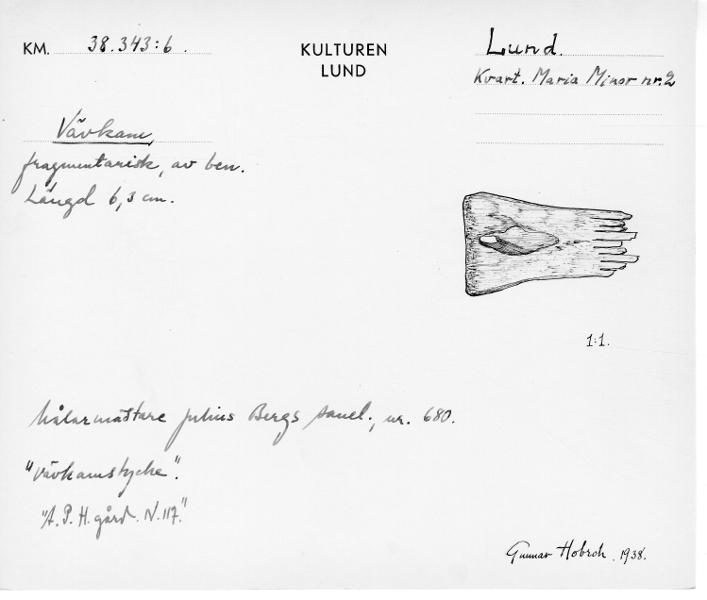 KM. 38.343:6.
KULTUREN
LUND
Lund.
Kvart. Maria Minor nr. 2
Vävkam,
fragmentarisk, av ben.
Längd 6,3 cm.
1:1.
Målarmästare Julius Bergs saml., nr. 680.
"Vävkamstycke".
"A. P. H. gård. N. 117."
Gunnar 1938.